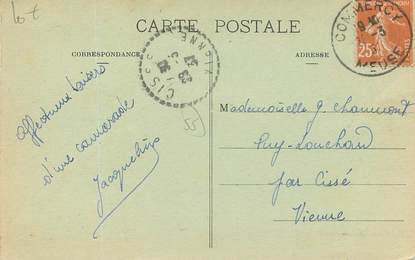 lot
CARTE POSTALE
CORRESPONDANCE
ADRESSE
COMMERCY
MEUSE
25
CISSÉ
VIENNE
affectueux baisers
d'une camarade
Jacqueline
55
Mademoiselle G. Chaumont
Puy-Lonchard
par Cissé
Vienne